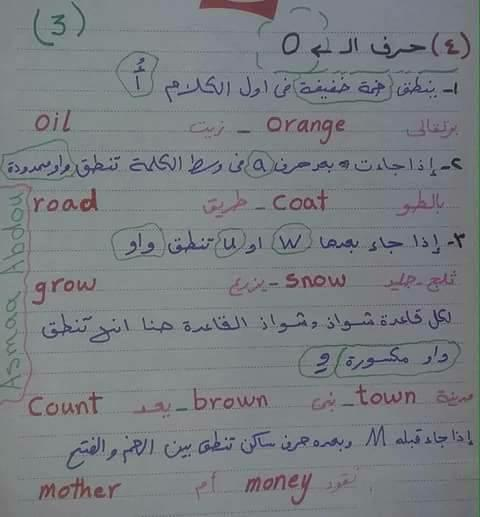 (3)
(٤) حرف الـ ← O
١- ينطق ضمة خفيفة فى اول الكلام أُ
برتقالى orange - زيت oil
٢- إذا جاءت بعد حرف a فى وسط الكلمة تنطق واو ممدودة
بالطو coat - طريق road
٣- إذا جاء بعدها w او u تنطق واو
ثلج - جليد snow - يزرع grow
لكل قاعدة شواذ وشواذ القاعدة هنا انها تنطق
واو مكسورة و
مدينة town - بنى brown - يعد Count
إذا جاء قبله M وبعده حرف ساكن تنطق بين الضم والفتح
نقود money أم mother
Asmaa Abdou